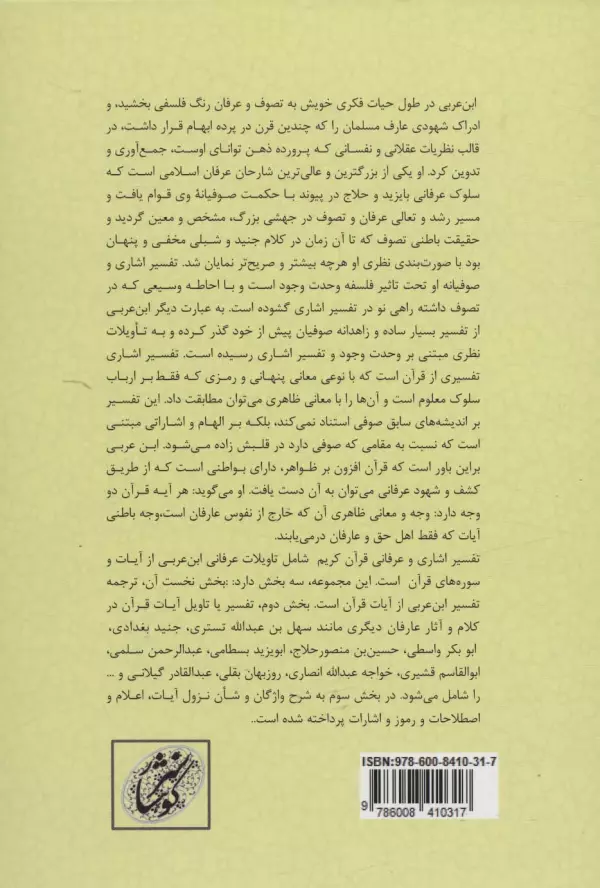 ابن‌عربی در طول حیات فکری خویش به تصوف و عرفان رنگ فلسفی بخشید، و
ادراک شهودی عارف مسلمان را که چندین قرن در پرده ابهام قرار داشت، در
قالب نظریات عقلانی و نفسانی که پرورده ذهن توانای اوست، جمع‌آوری و
تدوین کرد. او یکی از بزرگترین و عالی‌ترین شارحان عرفان اسلامی است که
سلوک عرفانی بایزید و حلاج در پیوند با حکمت صوفیانهٔ وی قوام یافت و
مسیر رشد و تعالی عرفان و تصوف در جهشی بزرگ، مشخص و معین گردید و
حقیقت باطنی تصوف که تا آن زمان در کلام جنید و شبلی مخفی و پنهان
بود با صورت‌بندی نظری او هرچه بیشتر و صریح‌تر نمایان شد. تفسیر اشاری و
صوفیانه او تحت تاثیر فلسفه وحدت وجود است و با احاطه وسیعی که در
تصوف داشته راهی نو در تفسیر اشاری گشوده است. به عبارت دیگر ابن‌عربی
از تفسیر بسیار ساده و زاهدانه صوفیان پیش از خود گذر کرده و به تأویلات
نظری مبتنی بر وحدت وجود و تفسیر اشاری رسیده است. تفسیر اشاری
تفسیری از قرآن است که با نوعی معانی پنهانی و رمزی که فقط بر ارباب
سلوک معلوم است و آن‌ها را با معانی ظاهری می‌توان مطابقت داد. این تفسیر
بر اندیشه‌های سابق صوفی استناد نمی‌کند، بلکه بر الهام و اشاراتی مبتنی
است که نسبت به مقامی که صوفی دارد در قلبش زاده می‌شود. ابن عربی
براین باور است که قرآن افزون بر ظواهر، دارای بواطنی است که از طریق
کشف و شهود عرفانی می‌توان به آن دست یافت. او می‌گوید: هر آیه قرآن دو
وجه دارد: وجه و معانی ظاهری آن که خارج از نفوس عارفان است،وجه باطنی
آیات که فقط اهل حق و عارفان درمی‌یابند.
تفسیر اشاری و عرفانی قرآن کریم شامل تاویلات عرفانی ابن‌عربی از آیات و
سوره‌های قرآن است. این مجموعه، سه بخش دارد: :بخش نخست آن، ترجمه
تفسیر ابن‌عربی از آیات قرآن است. بخش دوم، تفسیر یا تاویل آیات قرآن در
کلام و آثار عارفان دیگری مانند سهل بن عبدالله تستری، جنید بغدادی،
ابو بکر واسطی، حسین‌بن منصورحلاج، ابویزید بسطامی، عبدالرحمن سلمی،
ابوالقاسم قشیری، خواجه عبدالله انصاری، روزبهان بقلی، عبدالقادر گیلانی و ...
را شامل می‌شود. در بخش سوم به شرح واژگان و شأن نزول آیات، اعلام و
اصطلاحات و رموز و اشارات پرداخته شده است..
نشر
گویا
ISBN:978-600-8410-31-7
9 786008 410317